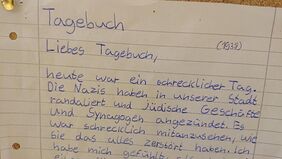 Tagebuch
(1938)
Liebes Tagebuch,
heute war ein schrecklicher Tag.
Die Nazis haben in unserer Stadt
randaliert und Jüdische Geschäfte
und Synagogen angezündet. Es
war schrecklich mitanzusehen, wie
sie das alles zerstört haben. Ich
habe mich gefühlt